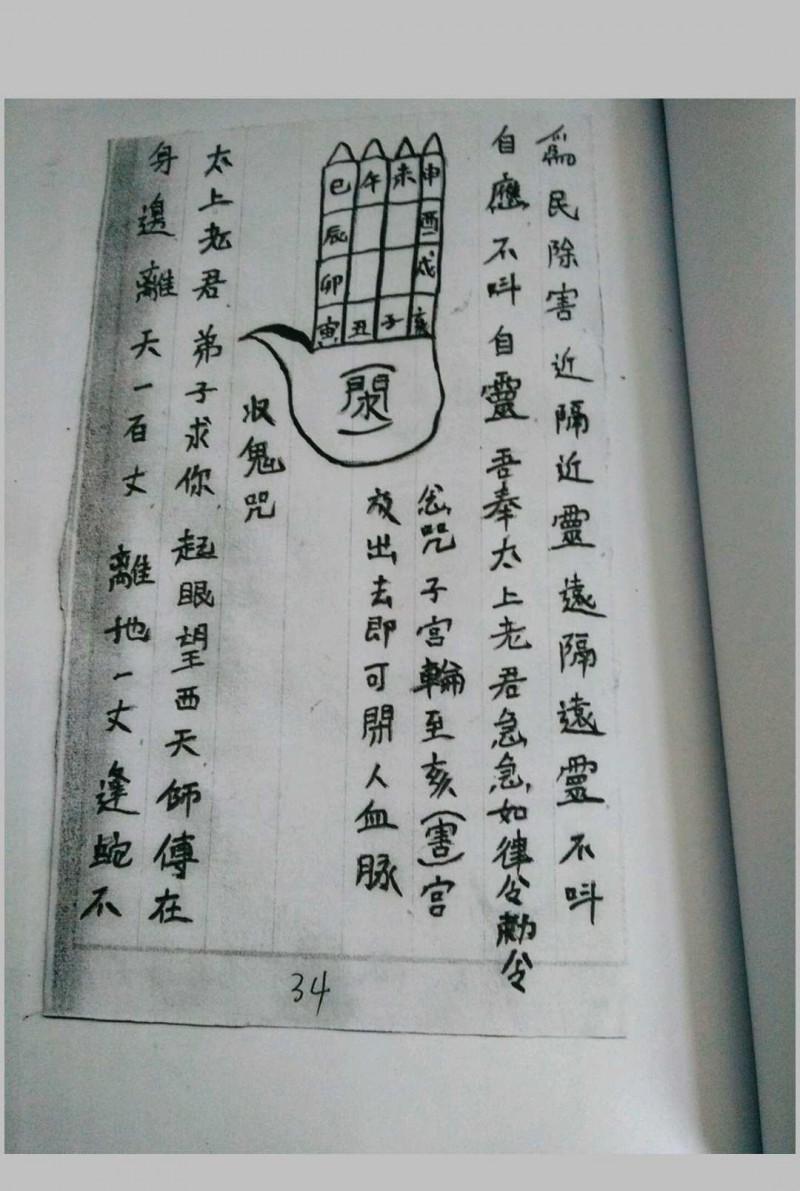 為民除害近隔近靈遠隔遠靈不叫
自應不叫自靈吾奉太上老君急急如律令勅令
念咒子宮輪至亥(害)宮
放出去即可閉人血脉
巳午未申
辰酉
卯戌
寅丑子亥
收鬼咒
太上老君弟子求你起眼望西天師傅在
身邊離天一百丈離地一丈逢蛇不
34